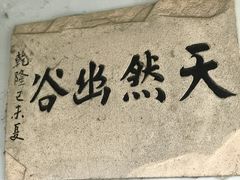 天然幽谷
乾隆己未夏